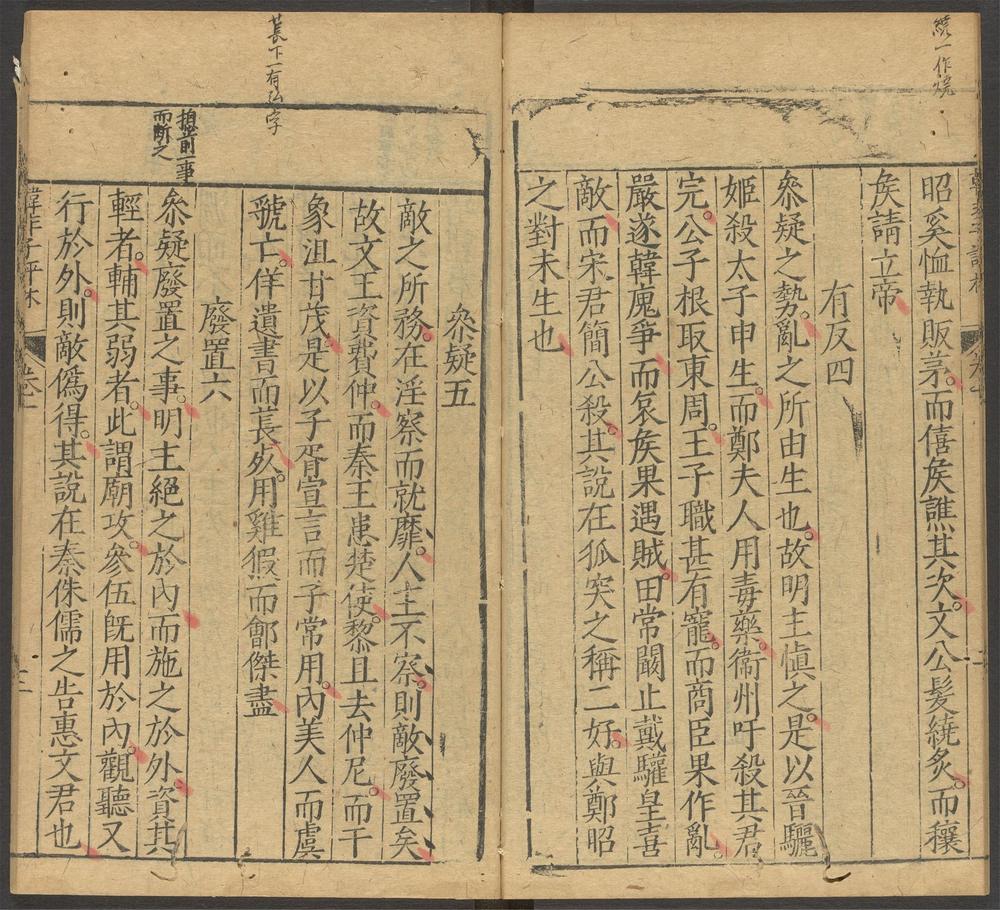 繞一作燒
昭奚恤執販茅。而僖矦譙其次。文公髪繞炙。而穰
矦請立帝
有反四
叅疑之勢。亂之所由生也。故明主愼之。是以晉驪
姬殺太子申生。而鄭夫人用毒藥。衞州吁殺其君
完。公子根取東周。王子職甚有寵。而商臣果作亂。
嚴遂韓廆爭。而哀矦果遇賊。田常闞止戴驩皇喜
敵。而宋君簡公殺。其說在狐突之稱二好。與鄭昭
之對未生也
叅疑五
敵之所務。在淫察而就靡。人主不察。則敵廢置矣
故文王資費仲。而秦王患楚使。黎且去仲尼。而干
萇下一有弘字
象沮甘茂。是以子胥宣言而子常用。內美人而虞
虢亡。佯遺書而萇死。用雞猳而鄶傑盡
廢置六
揔前一事
而斷之
叅疑廢置之事。明主絕之於內而施之於外。資其
輕者。輔其弱者。此謂廟攻。叅伍旣用於內。觀聽又
行於外。則敵僞得。其說在秦侏儒之告惠文君也
韓非子評林 卷十